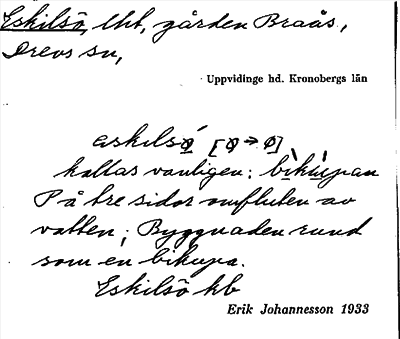 Eskilsö, lht, gården Braås,
Drevs sn,
Uppvidinge hd. Kronobergs län
eskilsø̀ [ø → ø]
kallas vanligen: bìkùpan
På tre sidor omfluten av
vatten; Byggnaden rund
som en bikupa.
Eskilsö hb
Erik Johannesson 1933